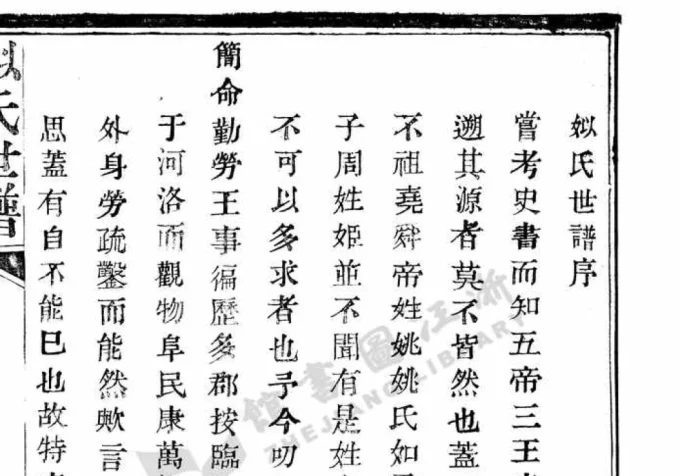 姒氏世譜序
嘗考史書而知五帝三王
遡其源者莫不皆然也蓋
不祖堯舜帝姓姚姚氏如
子周姓姬並不聞有是姓
不可以多求者也予今叨
簡命勤勞王事徧歷多郡按臨
于河洛而觀物阜民康萬
外身勞疏鑿而能然歟言
思蓋有自不能巳也故特
姒氏世譜
浙江圖書館
ZHEJIANG LIBRARY